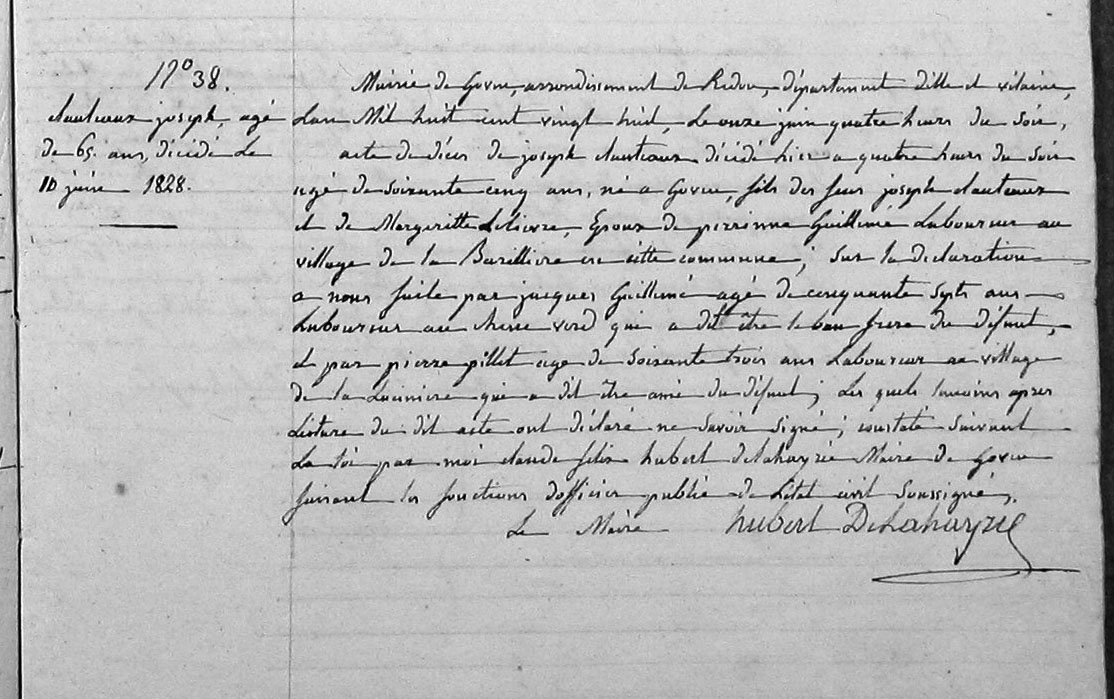 N° 38.
dauteaux joseph, agé
de 65 ans, décédé Le
10 juin 1828.
Mairie de Goven, arrondissement de Redon, département d'ille et vilaine,
Lan Mil huit cent vingt huit, Le onze juin quatre heures du Soir,
acte de décès de joseph dauteaux décédé hier a quatre heures du Soir
agé de Soixante cinq ans, né a Goven, fils des feus joseph dauteaux
et de Margueritte Lelievre, Epoux de pierrinne Guillemé Laboureur au
village de la en cette commune; Sur la déclaration
a nous faite par jacques Guillemé agé de cinquante Septs ans
Laboureur au Chene verd qui a dit être le bau frere du défunt,
et par pierre pillet agé de Soixante trois ans Laboureur au village
de la qui a dit être amie du défunt; Les quels temoins apres
Lecture du dit acte ont déclaré ne Savoir Signé; constaté Suivant
La loi par moi claude felix hubert delahayrie Maire de Goven
faisant les fonctions d'officier public de L'état civil Soussigné,
Le Maire hubert DeLahayrie